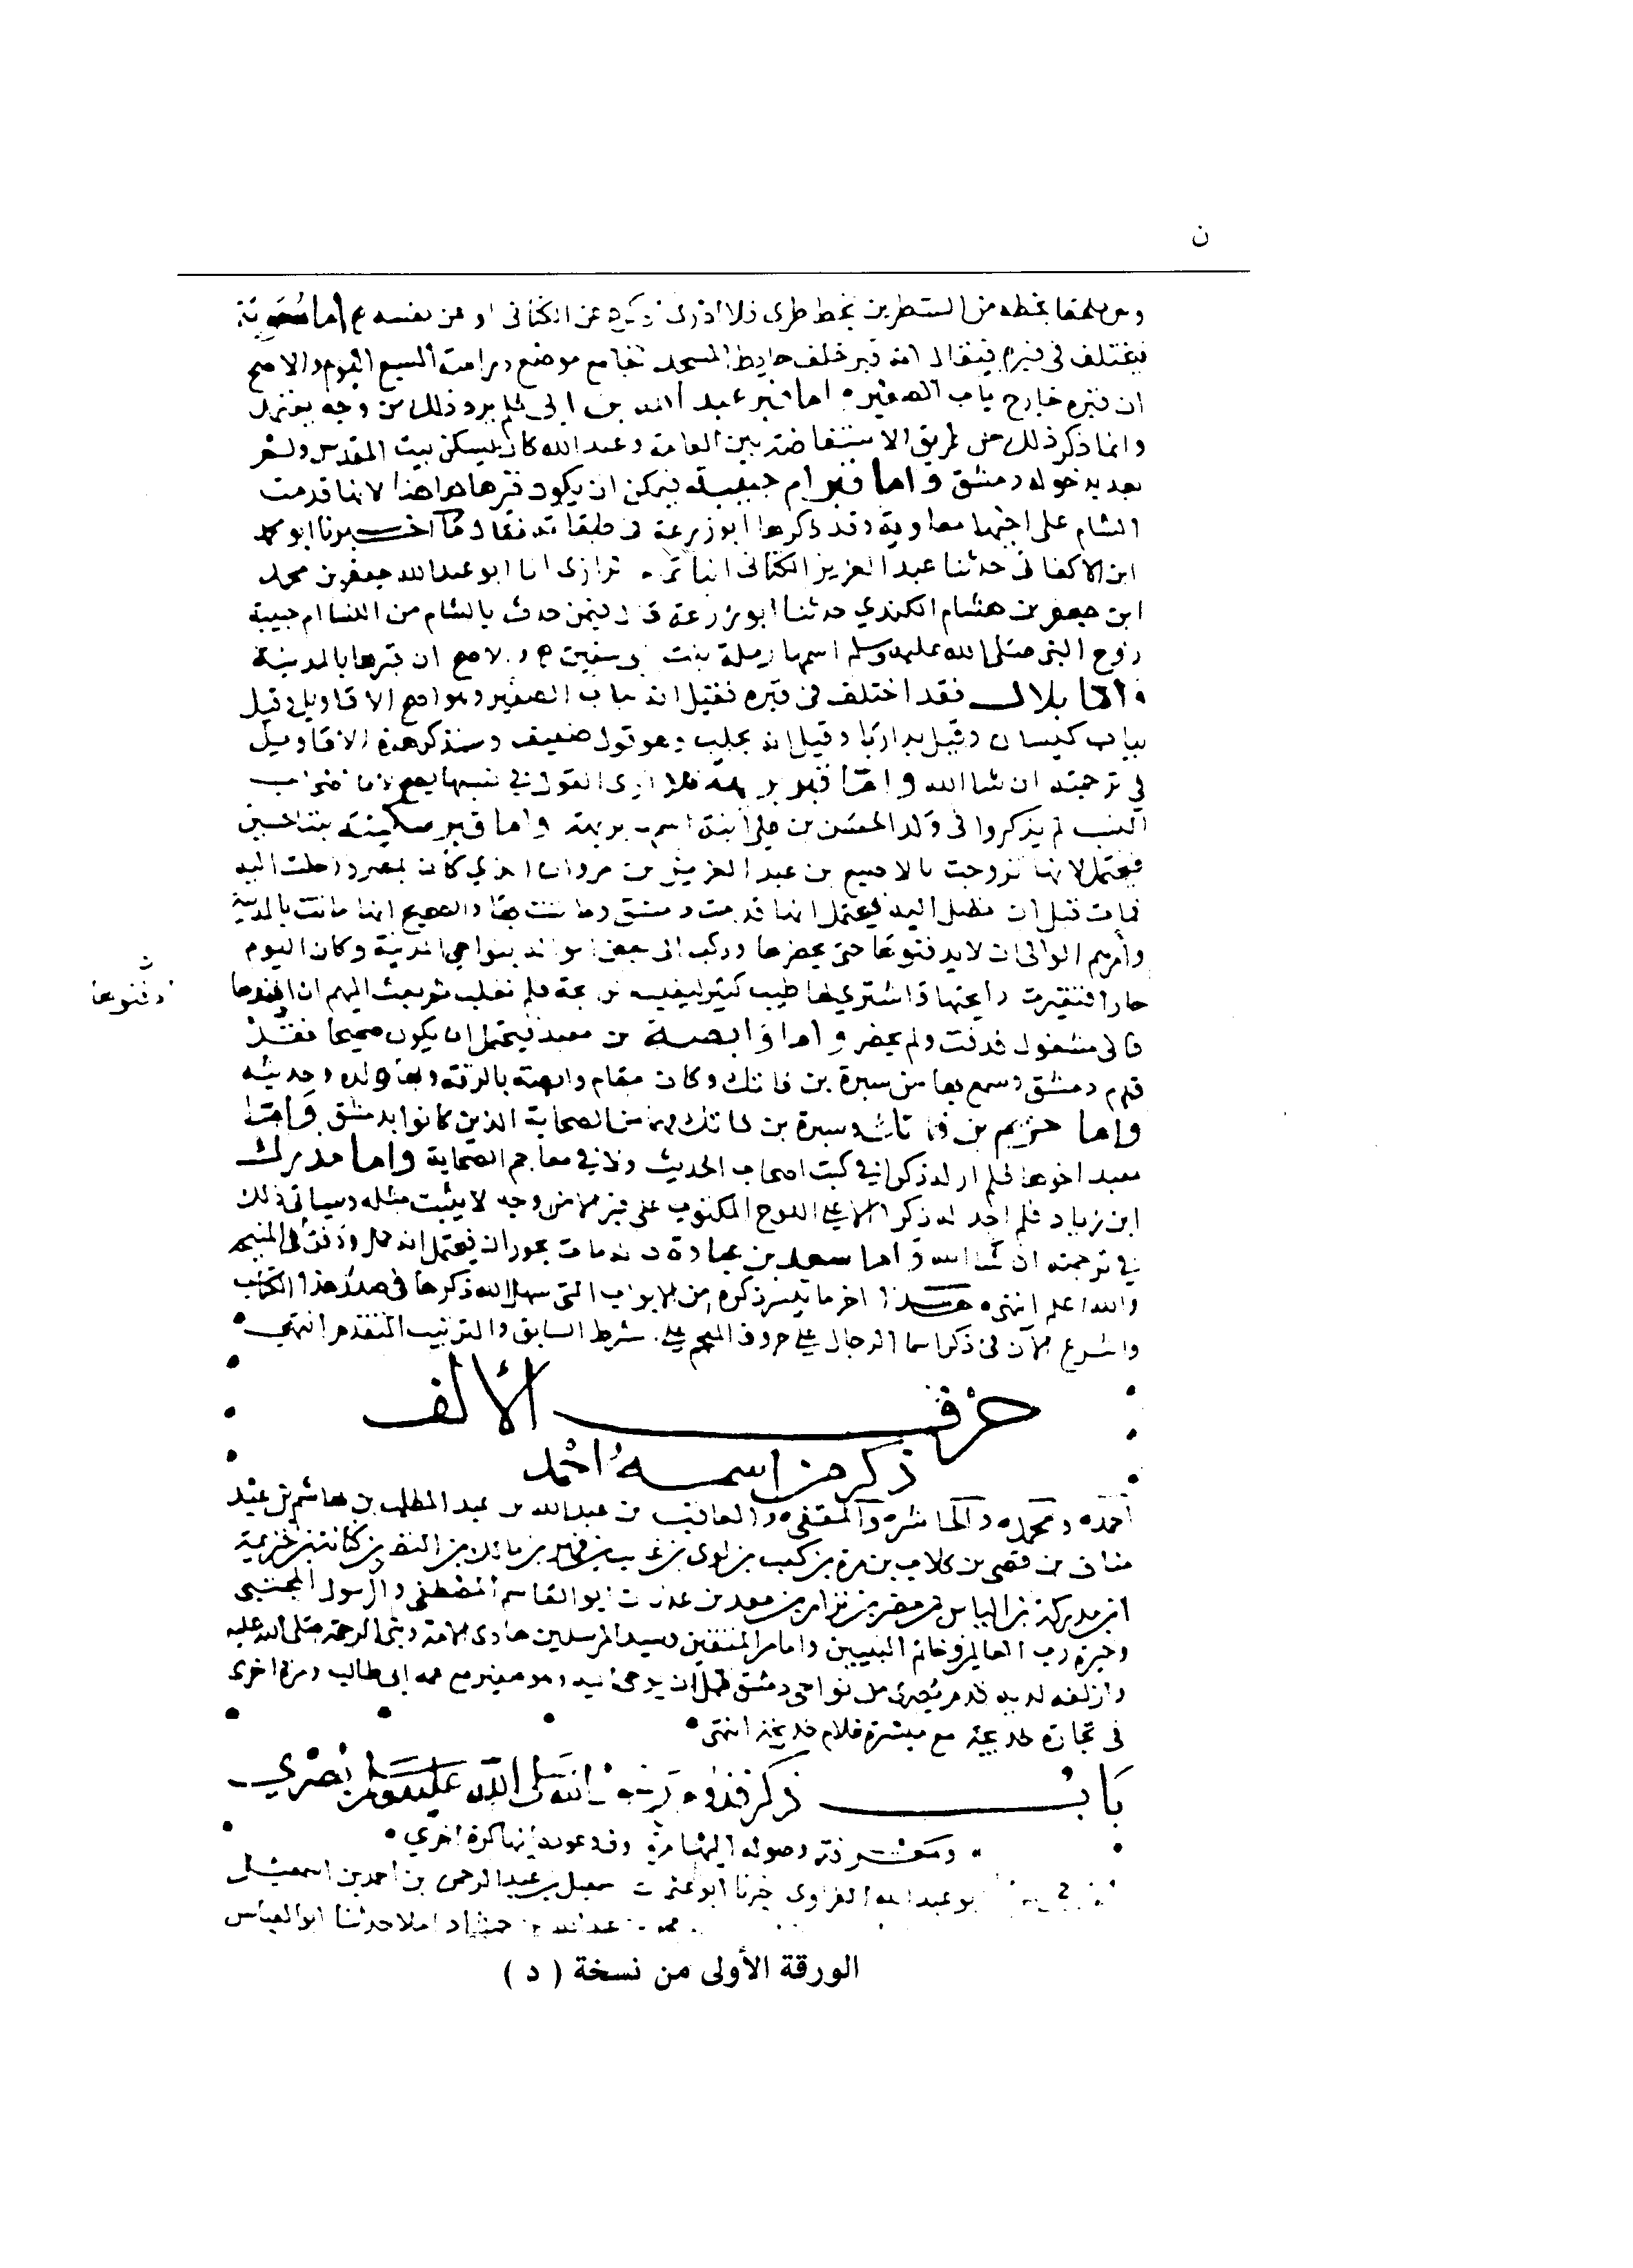 ن
ملحقا بخطه من السطرين بخط طري فلا ادرى ذكره عن الكتانى او عن نفسه اما معوية
فيختلف فى قبره فيقال انه قبر خلف حايط المسجد الجامع موضع دراسة السبع اليوم والاصح
ان قبره خارج باب الصغير اما قبر عبد الله بن ابى فلم يرد ذلك من وجه
وانما ذكر ذلك على طريق الاستفاضة بين العامة وعبد الله كان يسكن بيت المقدس
دخوله دمشق واما قبر ام حبيبة فيمكن ان يكون قبرها هذا لانها قدمت
الشام على اخيها معاوية وقد ذكرها ابو زرعة فى طبقاته فقال ما اخبرنا ابو محمد
ابن الاكفانى حدثنا عبد العزيز الكتانى انبا تمام الرازى انا ابو عبد الله جعفر بن محمد
ابن جعفر بن هشام الكندي حدثنا ابو زرعة قال فيمن حدث بالشام من النسا ام حبيبة
زوج النبى صلى الله عليه وسلم اسمها رملة بنت ابى سفين والاصح ان قبرها بالمدينة
واما بلال فقد اختلف فى قبره فقيل انه بباب الصغير وهو اصح الاقاويل وقيل
بباب كيسان وقيل بداريا وقيل انه بحلب وهو قول ضعيف وسنذكر هذه الاقاويل
في ترجمته ان شا الله واما قبر بريهة فلا ارى القول في نسبها يصح لان اصحاب
النسب لم يذكروا فى ولد الحسن بن علي ابنة اسمها بريهة واما قبر سكينة بنت الحسين
فيحتمل لانها تزوجت بالاصبغ بن عبد العزيز بن مروان الذي كان بمصر ورحلت اليه
فمات قبل ان تصل اليه فيحتمل انها قدمت دمشق وماتت بها والصحيح انها ماتت بالمدينة
وامرهم الوالى ان لا يدفنوها حتى يحضرها وركب الى بعض امواله بنواحي المدينة وكان اليوم
حارا فتغيرت رايحتها فاشتري لها طيب كثير ليغلب الرايحة فلم تغلب ثم بعث اليهم ان ادفنوها
دفنوها ن
فانى مشغول فدفنت ولم يحضر واما وابصة بن معبد فيحتمل ان يكون صحيحا فقد
قدم دمشق وسمع بها من سبرة بن فاتك وكان مقام وابصة بالرقة وبها ولده وحديثه
واما خريم بن فاتك وسبرة بن فاتك فهما من الصحابة الذين كانوا بدمشق واما
معبد اخوهما فلم ار له ذكرا في كتب اصحاب الحديث ولا في معاجم الصحابة واما مدرك
ابن زياد فلم اجد له ذكرا الا على اللوح المكتوب على قبره من وجه لا يثبت مثله وسياتى ذلك
في ترجمته ان شا الله واما سعد بن عبادة فانه مات بحوران فيحتمل انه حمل ودفن فى المنيحة
والله اعلم انتهى هذا اخر ما تيسر ذكره من الابواب التى سهل الله ذكرها فى صدر هذا الكتاب
واشرع الان فى ذكر اسما الرجال على حروف المعجم على شرط السابق والترتيب المتقدم انتهى
حرف الألف
ذكر من اسمه احمد
احمد ومحمد والحاشر والمقفى والعاقب بن عبد الله بن عبد المطلب بن هاشم بن عبد
مناف بن قصى بن كلاب بن مرة بن كعب بن لوى بن غالب بن فهر بن مالك بن النضر بن كنانة بن خزيمة
ابن مدركة بن الياس بن مضر بن نزار بن معد بن عدنان ابو القاسم المصطفى والرسول المجتبى
وخيرة رب العالمين وخاتم النبيين وامام المتقين وسيد المرسلين هادى الامة ونبى الرحمة صلى الله عليه
وازلفه لديه قدم بصرى من نواحى دمشق قبل ان يوحى اليه وهو صغير مع عمه ابى طالب ومرة اخرى
فى تجارة لخديجة مع ميسرة غلام خديجة انتهى
باب ذكر قدوم رسول الله صلى الله عليه وسلم بصري
ومعرفة وصوله اليها مرة وعوده اليها كرة اخري
ابو عبد الله الفراوى اخبرنا ابو عثمان اسمعيل بن عبد الرحمن بن احمد بن اسمعيل
محمد بن عبد الله بن حمشاد املا حدثنا ابو العباس
الورقة الأولى من نسخة ( د )